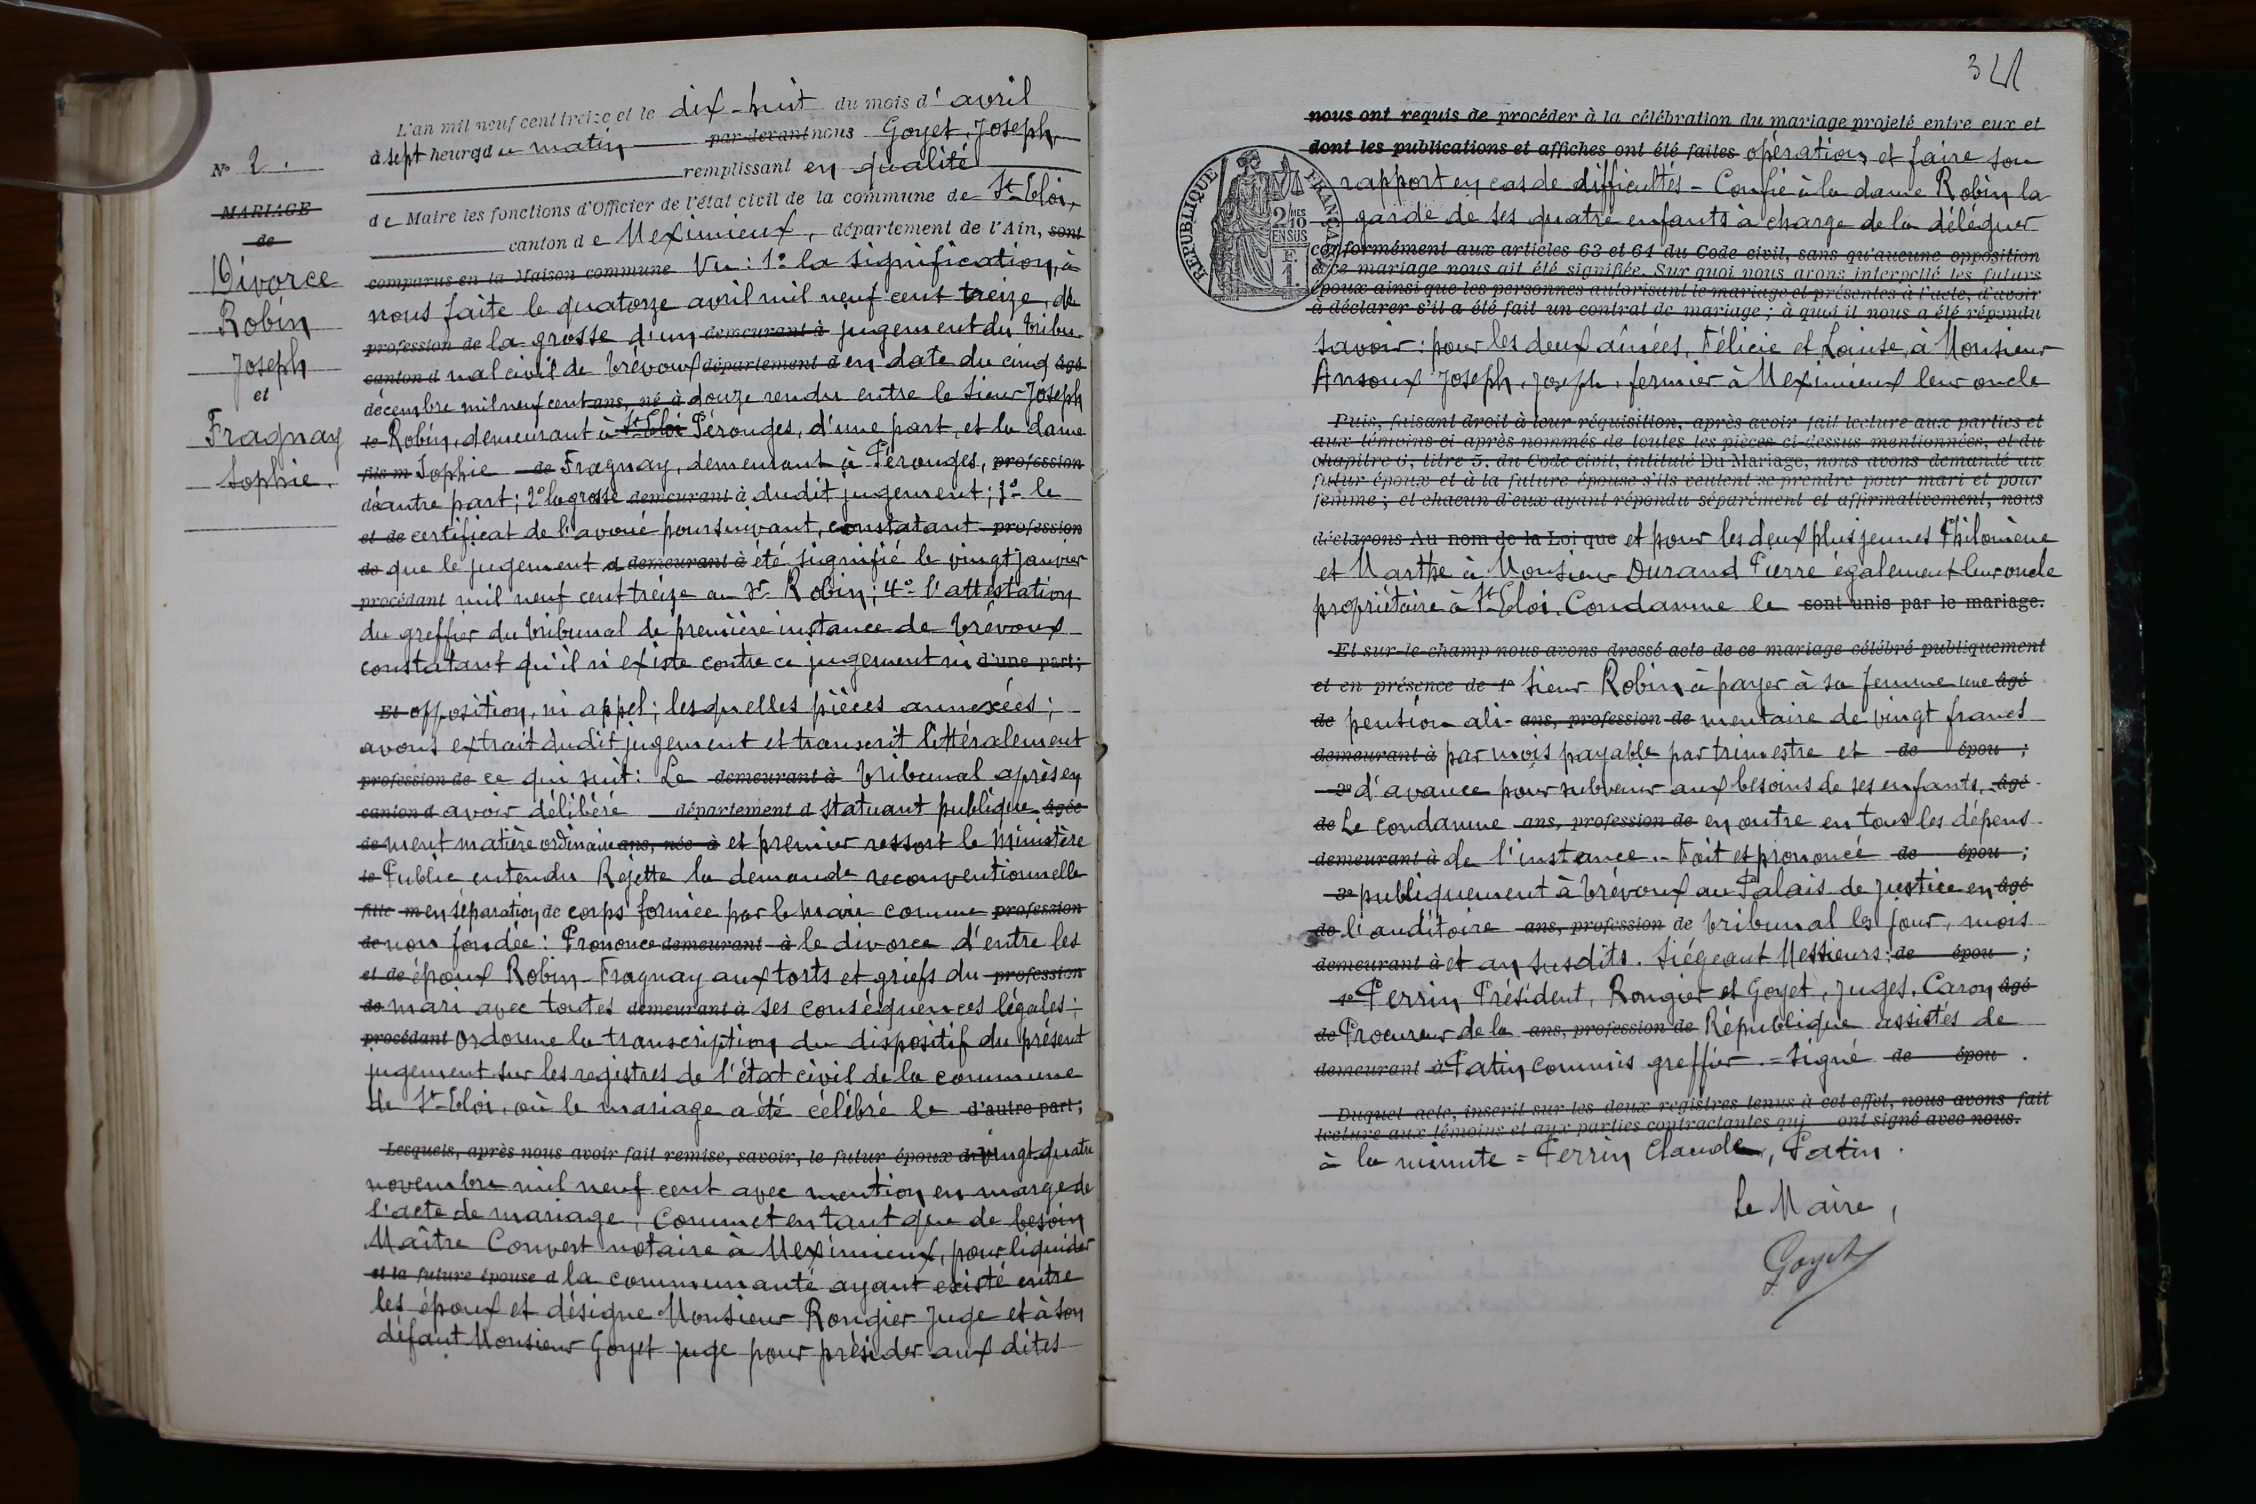 L'an mil neuf cent treize et le dix-huit du mois d'avril
à sept heures du matin par devant nous Goyet, Joseph,
remplissant en qualité
de Maire les fonctions d'Officier de l'état civil de la commune de St-Eloi,
canton de Meximieux, département de l'Ain, sont
N° 2.
MARIAGE
de
Divorce
Robin
Joseph
et
Fragnay
Sophie.
comparus en la Maison commune Vu : 1° la signification, à
nous faite le quatorze avril mil neuf cent treize, de
profession de la grosse d'un demeurant à jugement du tribu-
canton d nal civil de Trévoux département d en date du cinq âgé
décembre mil neuf cent ans, né à douze rendu entre le sieur Joseph
le Robin, demeurant à St Eloi Pérouges, d'une part, et la dame
fils m Sophie de Fragnay, demeurant à Pérouges, profession
de autre part ; 2° la grosse demeurant à dudit jugement ; 3° le
et de certificat de l'avoué poursuivant, constatant profession
de que le jugement a demeurant à été signifié le vingt janvier
procédant mil neuf cent treize au Sr Robin ; 4° l'attestation
du greffier du tribunal de première instance de Trévoux
constatant qu'il n'existe contre ce jugement ni d'une part ;
Et opposition, ni appel ; lesquelles pièces annexées ;
avons extrait dudit jugement et transcrit littéralement
profession de ce qui suit : Le demeurant à tribunal après en
canton d avoir délibéré département d statuant publique âgée
de ment matière ordinaire ans, née à et premier ressort le Ministère
le Public entendu Rejette la demande reconventionnelle
fille m en séparation de corps formée par le mari comme profession
de non fondée : Prononce demeurant à le divorce d'entre les
et de époux Robin-Fragnay aux torts et griefs du profession
de mari avec toutes demeurant à ses conséquences légales ;
procédant Ordonne la transcription du dispositif du présent
jugement sur les registres de l'état civil de la commune
de St-Eloi, où le mariage a été célébré le d'autre part ;
Lesquels, après nous avoir fait remise, savoir, le futur époux d vingt-quatre
novembre mil neuf cent avec mention en marge de
l'acte de mariage ; Commet en tant que de besoin
Maître Convert notaire à Meximieux, pour liquider
et la future épouse d la communauté ayant existé entre
les époux et désigne Monsieur Rougier Juge et à son
défaut Monsieur Goyet juge pour présider aux dites
nous ont requis de procéder à la célébration du mariage projeté entre eux et
dont les publications et affiches ont été faites opérations et faire son
rapport en cas de difficultés - Confie à la dame Robin la
garde de ses quatre enfants à charge de la déléguer
conformément aux articles 63 et 64 du Code civil, sans qu'aucune opposition
à ce mariage nous ait été signifiée. Sur quoi nous avons interpellé les futurs
époux ainsi que les personnes autorisant le mariage et présentes à l'acte, d'avoir
à déclarer s'il a été fait un contrat de mariage ; à quoi il nous a été répondu
RÉPUBLIQUE FRANÇAISE
2/10
EN SUS
F.
1.
savoir : pour les deux aînées, Félicie et Louise, à Monsieur
Ansoux Joseph, Joseph, fermier à Meximieux leur oncle
Puis, faisant droit à leur réquisition, après avoir fait lecture aux parties et
aux témoins ci-après nommés de toutes les pièces ci-dessus mentionnées, et du
chapitre 6, titre 5, du Code civil, intitulé Du Mariage, nous avons demandé au
futur époux et à la future épouse s'ils veulent se prendre pour mari et pour
femme ; et chacun d'eux ayant répondu séparément et affirmativement, nous
déclarons Au nom de la Loi que et pour les deux plus jeunes Philomène
et Marthe à Monsieur Durand Pierre également leur oncle
propriétaire à St-Eloi, Condamne le sont unis par le mariage.
Et sur-le-champ nous avons dressé acte de ce mariage célébré publiquement
et en présence de 1° sieur Robin à payer à sa femme une âgé
de pension ali- ans, profession de mentaire de vingt francs
demeurant à par mois payable par trimestre et de épou ;
2° d'avance pour subvenir aux besoins de ses enfants, âgé
de Le condamne ans, profession de en outre en tous les dépens
demeurant à de l'instance.- Fait et prononcé de épou ;
3° publiquement à Trévoux au Palais de Justice en âgé
de l'auditoire ans, profession de tribunal les jour, mois
demeurant à et an susdits. Siégeant Messieurs : de épou ;
4° Perrin Président, Rougier et Goyet, Juges, Caron âgé
de Procureur de la ans, profession de République assistés de
demeurant à Patin commis greffier. = Signé de épou .
Duquel acte, inscrit sur les deux registres tenus à cet effet, nous avons fait
lecture aux témoins et aux parties contractantes qui ont signé avec nous.
à la minute = Perrin Claude, Patin.
Le Maire,
Goyet